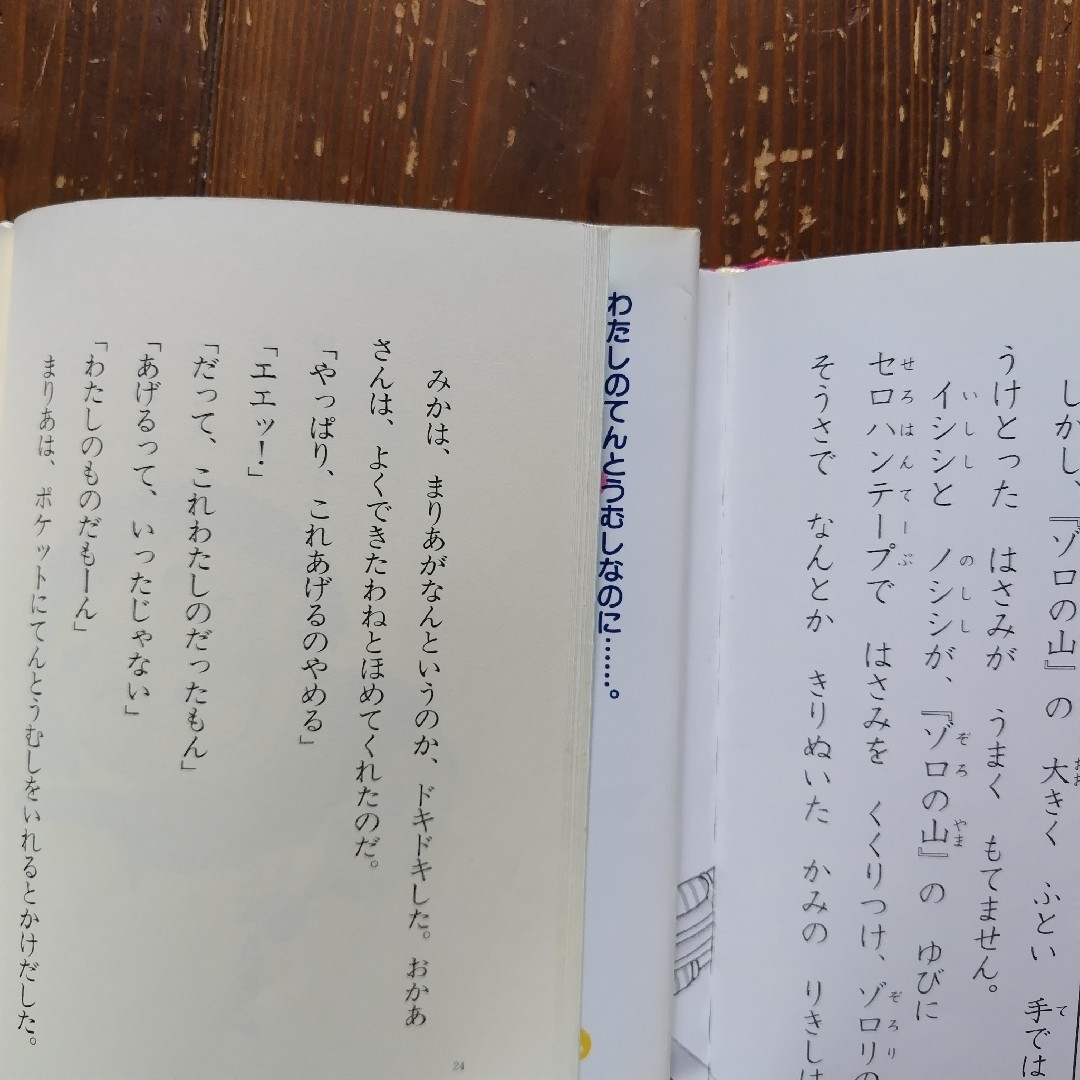 しかし、『ゾロの山』の 大きく ふとい 手では
うけとった はさみが うまく もてません。
イシシと ノシシが、『ゾロの山』の ゆびに
セロハンテープで はさみを くくりつけ、ゾロリの
そうさで なんとか きりぬいた かみの りきしは
わたしのてんとうむしなのに……。
みかは、まりあがなんというのか、ドキドキした。おかあ
さんは、よくできたわねとほめてくれたのだ。
「やっぱり、これあげるのやめる」
「エエッ！」
「だって、これわたしのだったもん」
「あげるって、いったじゃない」
「わたしのものだもーん」
まりあは、ポケットにてんとうむしをいれるとかけだした。
24